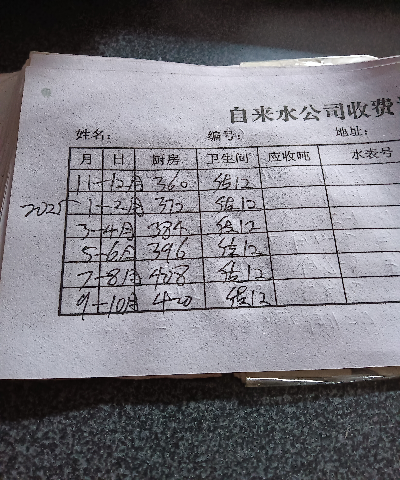 自来水公司收费
姓名： 编号： 地址：
月 日 厨房 卫生间 应收吨 水表号
11-12月 360 结12
2025 1-2月 372 结12
3-4月 384 结12
5-6月 396 结12
7-8月 408 结12
9-10月 420 结12